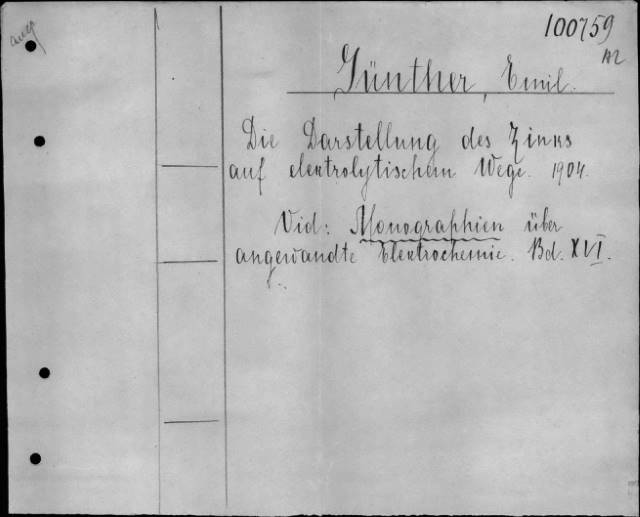 100759
A2
Günther, Emil.
Die Darstellung des Zinks
auf elektrolytischem Wege. 1904.
Vid: Monographien über
angewandte Elektrochemie. Bd. XVI.